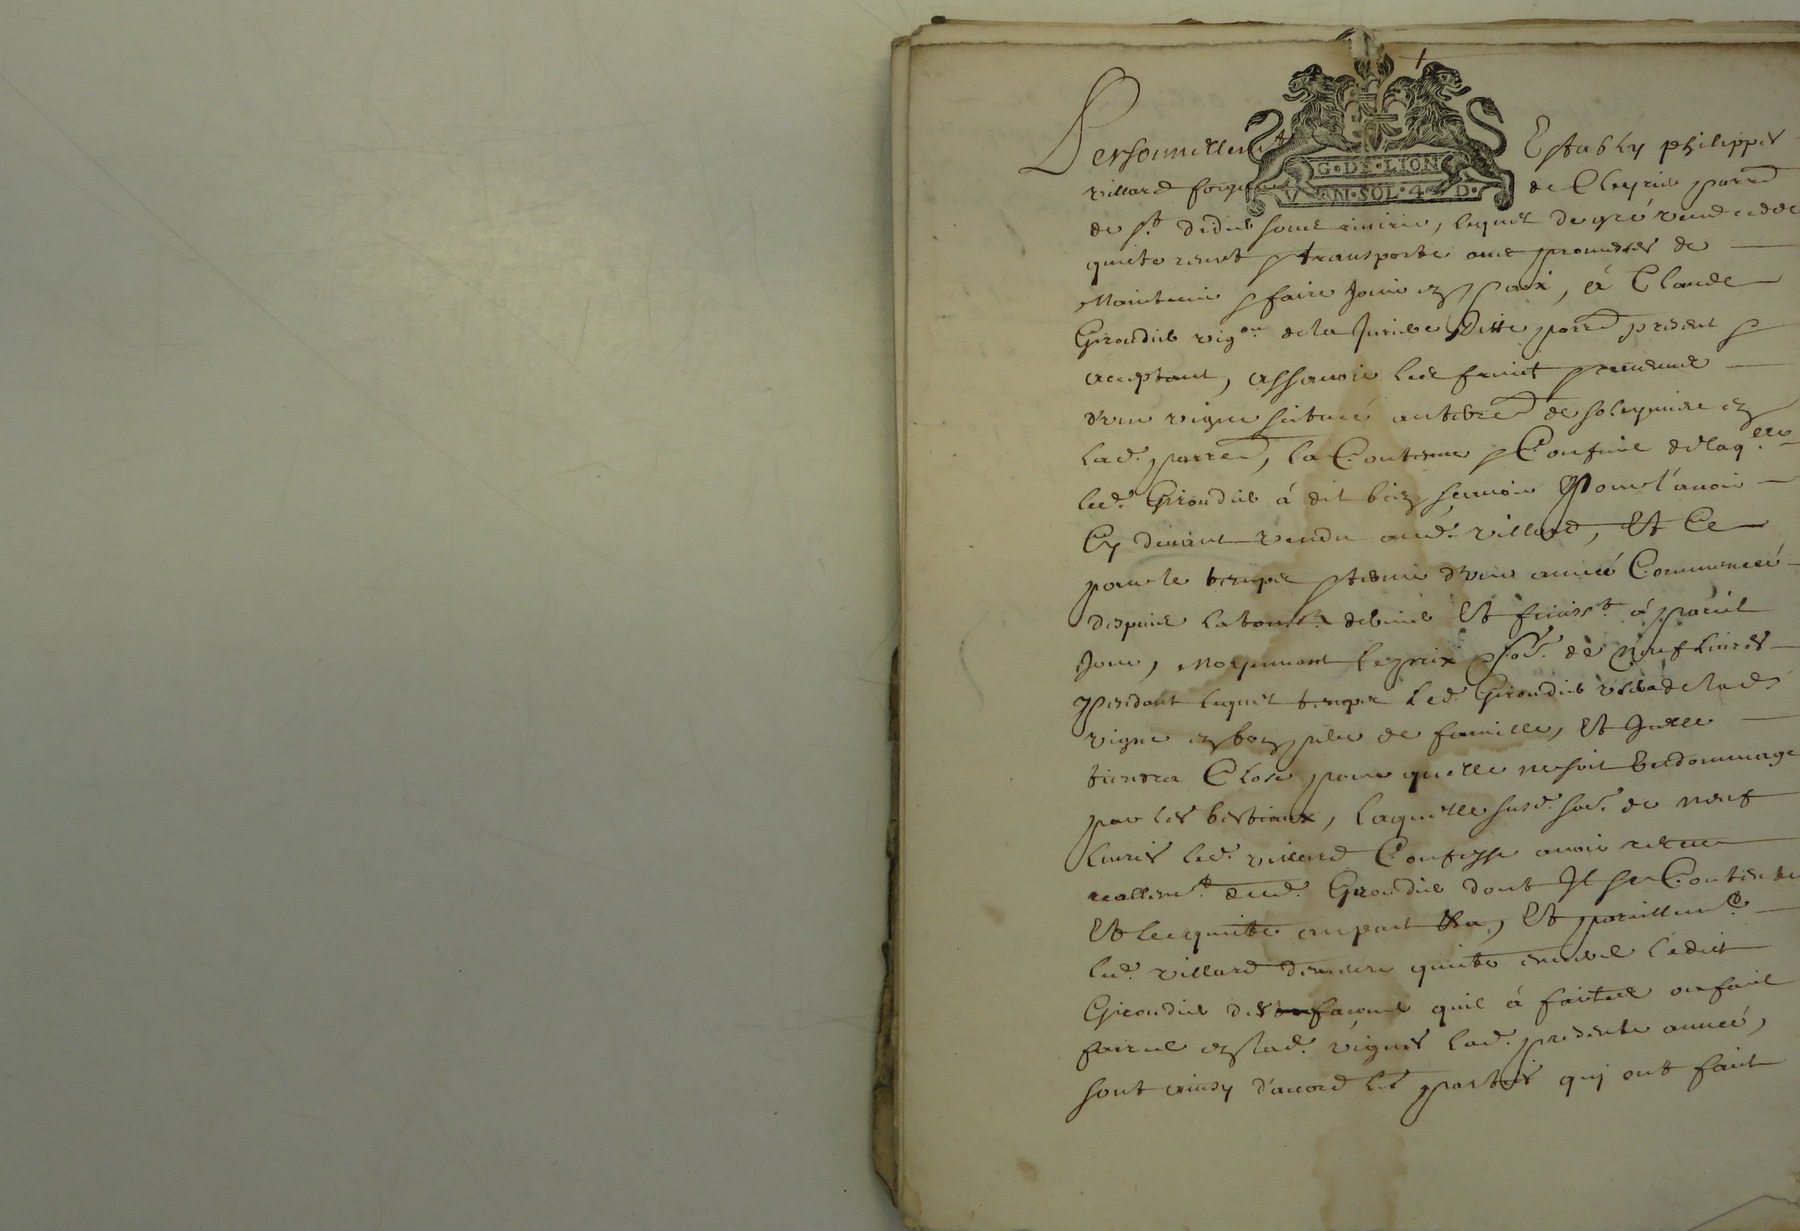 G·DE·LION
VN·SOL·4·D·
Personnellemt Estably philippes
villard forgeu de Cleyrie parrd
de st didier soubz riviere, lequel de gré vend cedde
quicte remet & transporte avec promesses de
Maintenir & faire Jouir en paix, à Claude
Giroudier vignon de la ditte parrd present &
acceptant, assavoir les fruict & revenus
d'une vigne scituee au de soleymieu en
lad. parred, la Contenue & Confins de laqelle
led. Giroudier à dit bien sçavoir Pour l'avoir
Cy devant vendu aud. villard, Et Ce
pour le temps & terme d'une année Commencée
despuis la toussts derniers Et finisst à pareil
Jour, Moyennant le prix & so.e de Neuf livres
Pendant lequel temps led. Giroudier usera de lad.
vigne en bon pere de famille, Et quelle
tiendra Close pour quelle ne soit Endommagé
par les bestiaux, laquelle susd. so.e de neuf
livres led. villard Confesse avoir receue
reallemt dud. Giroudier dont Il se Contente
Et le quitte Et pareillemt
led. villard demeure quitte envers ledict
Giroudier des façons quil à faictes ou faict
faire en lad. vignes lad. presente année,
sont ainsy d'accord les parties qui ont faict